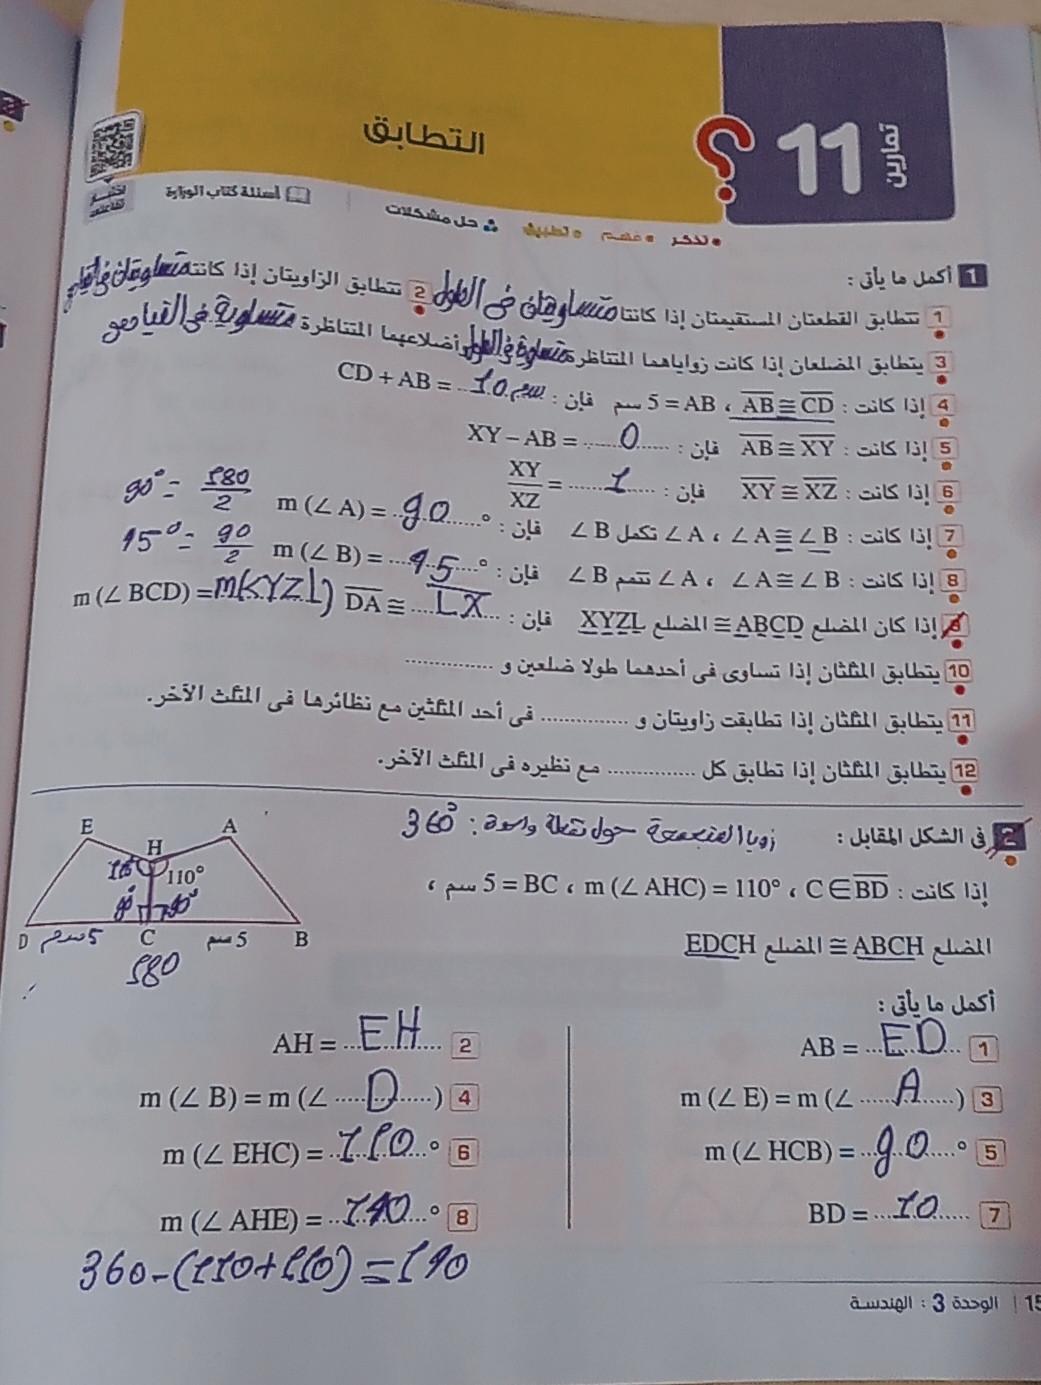 تمارين 11
التطابق
اختبار تفاعلى
أسئلة كتاب الوزارة
• تذكر • فهم • تطبيق حل مشكلات
1 أكمل ما يأتى :
1 تتطابق القطعتان المستقيمتان إذا كانتا متساويتان فى الطول 2 تتطابق الزاويتان إذا كانتا متساويتان فى القياس
3 يتطابق المضلعان إذا كانت زواياهما المتناظرة متساوية فى الطول وأضلاعهما المتناظرة متساوية فى القياس
4 إذا كانت : AB ≅ CD ، AB = 5 سم فإن : CD + AB = 10 سم
5 إذا كانت : AB ≅ XY فإن : XY – AB = 0
6 إذا كانت : XY ≅ XZ فإن : XY/XZ = 1
7 إذا كانت : ∠ A ≅ ∠ B ، ∠ A تكمل ∠ B فإن : m (∠ A) = 90° 90° = 180/2
8 إذا كانت : ∠ A ≅ ∠ B ، ∠ A تتمم ∠ B فإن : m (∠ B) = 45° 45° = 90/2
إذا كان المضلع ABCD ≅ المضلع XYZL فإن : DA ≅ LX m (∠ BCD) = m(∠YZL)
10 يتطابق المثلثان إذا تساوى فى أحدهما طولا ضلعين و ..............
11 يتطابق المثلثان إذا تطابقت زاويتان و .............. فى أحد المثلثين مع نظائرها فى المثلث الآخر.
12 يتطابق المثلثان إذا تطابق كل .............. مع نظيره فى المثلث الآخر.
2 فى الشكل المقابل : حول نقطة واحدة : 360°
إذا كانت : C ∈ BD ، m (∠ AHC) = 110° ، BC = 5 سم ،
المضلع ABCH ≅ المضلع EDCH
E A
H
110 110°
90° 90°
D 5 سم C 5 سم B
180
أكمل ما يأتى :
1 AB = ED
2 AH = EH
3 m (∠ E) = m (∠ A)
4 m (∠ B) = m (∠ D)
5 m (∠ HCB) = 90°
6 m (∠ EHC) = 110°
7 BD = 10
8 m (∠ AHE) = 140°
360-(110+110) = 140
15 | الوحدة 3 : الهندسة